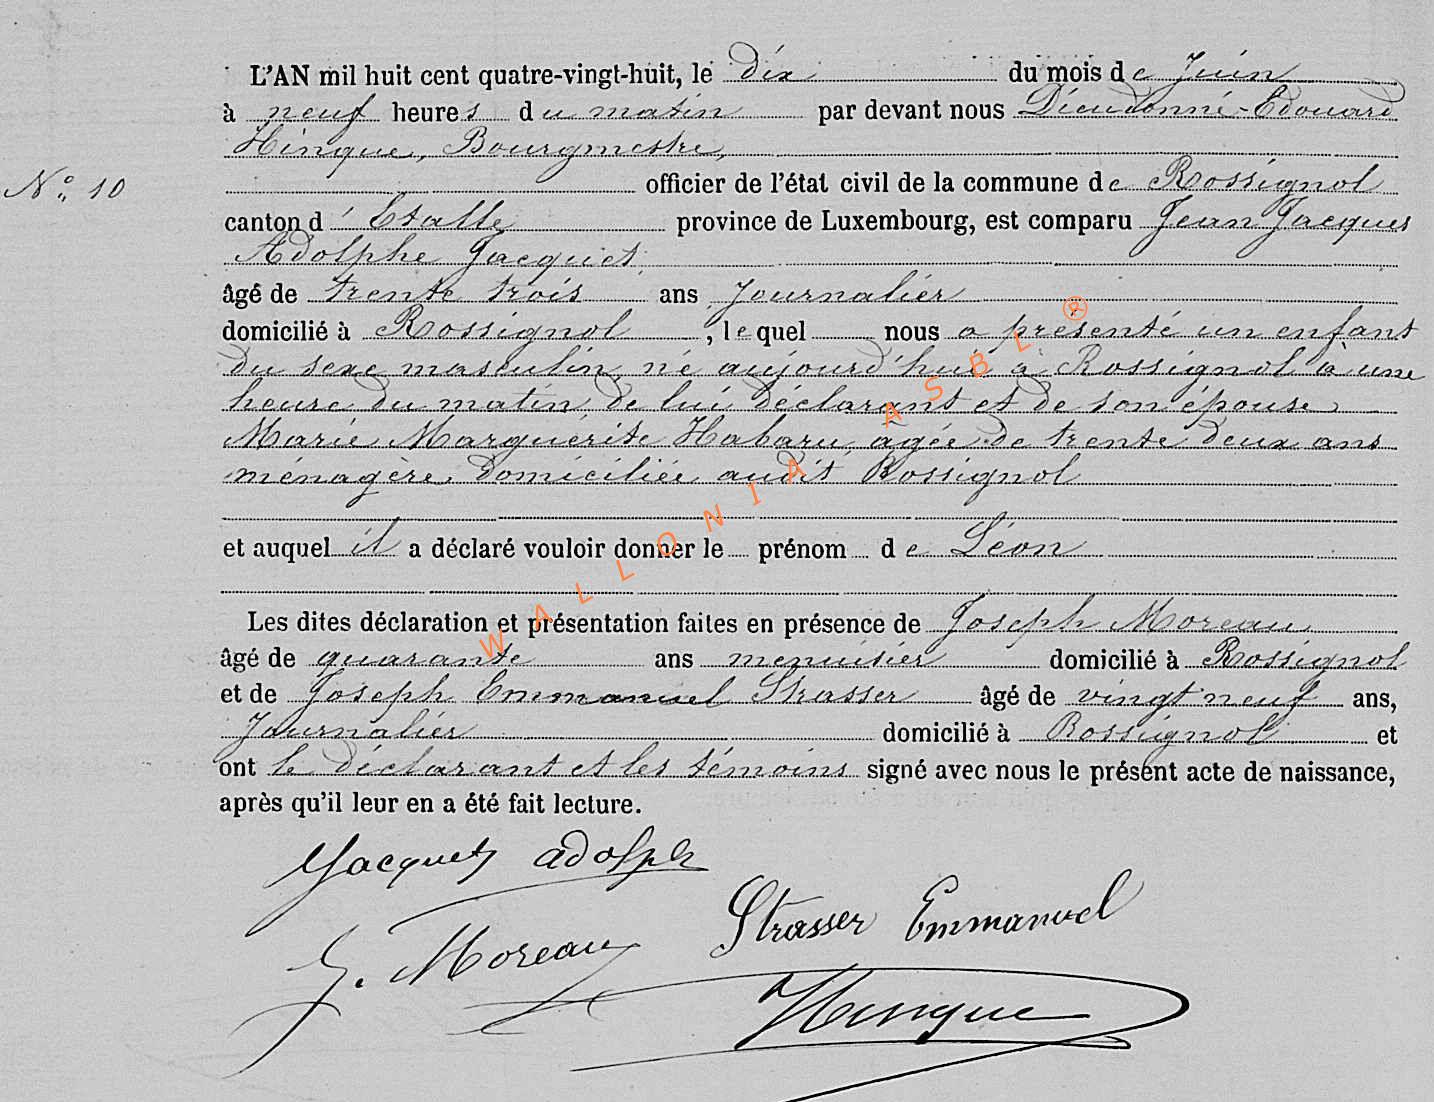 L'AN mil huit cent quatre-vingt-huit, le dix du mois de Juin
à neuf heures du matin par devant nous Dieudonné-Edouard
Hinque, Bourgmestre,
N° 10
officier de l'état civil de la commune de Rossignol
canton d'Etalle province de Luxembourg, est comparu Jean Jacques
Adolphe Jacquet,
âgé de trente trois ans Journalier
domicilié à Rossignol, lequel nous a présenté un enfant
du sexe masculin né aujourd'hui à Rossignol à une
heure du matin, de lui déclarant et de son épouse
Marie Marguérite Habaru, agée de trente deux ans
ménagère domiciliée audit Rossignol
et auquel il a déclaré vouloir donner le prénom de Léon
Les dites déclaration et présentation faites en présence de Joseph Moreau
âgé de quarante ans menuisier domicilié à Rossignol
et de Joseph Emmanuel Strasser âgé de vingt neuf ans,
Journalier domicilié à Rossignol et
ont le déclarant et les témoins signé avec nous le présent acte de naissance,
après qu'il leur en a été fait lecture.
Jacquet adolph
Strasser Emmanuel
J. Moreau
Hinque
WALLONIA ASBL ®